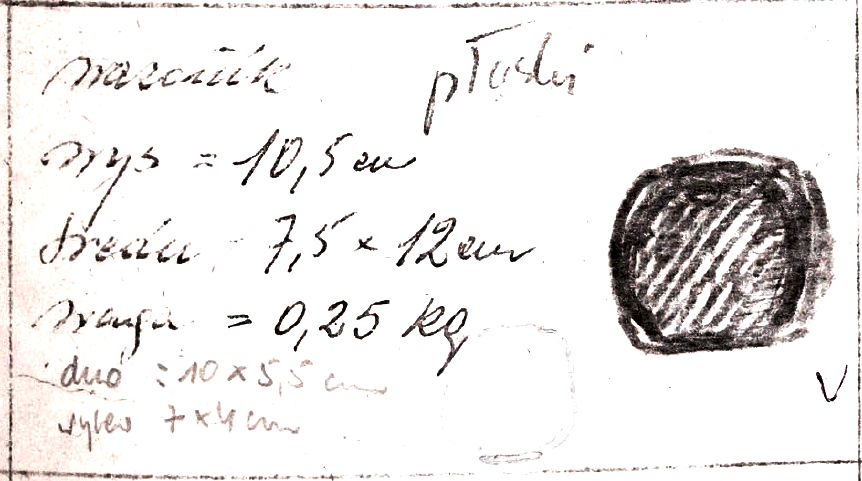 wazonik płaski
wys = 10,5 cm
średn = 7,5 × 12 cm
waga = 0,25 kg
dno = 10 × 5,5 cm
7 × 4 cm
V